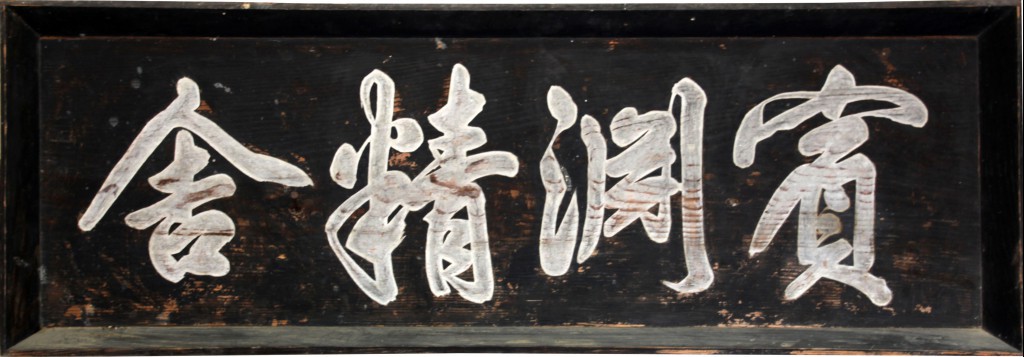 賓淵精舍